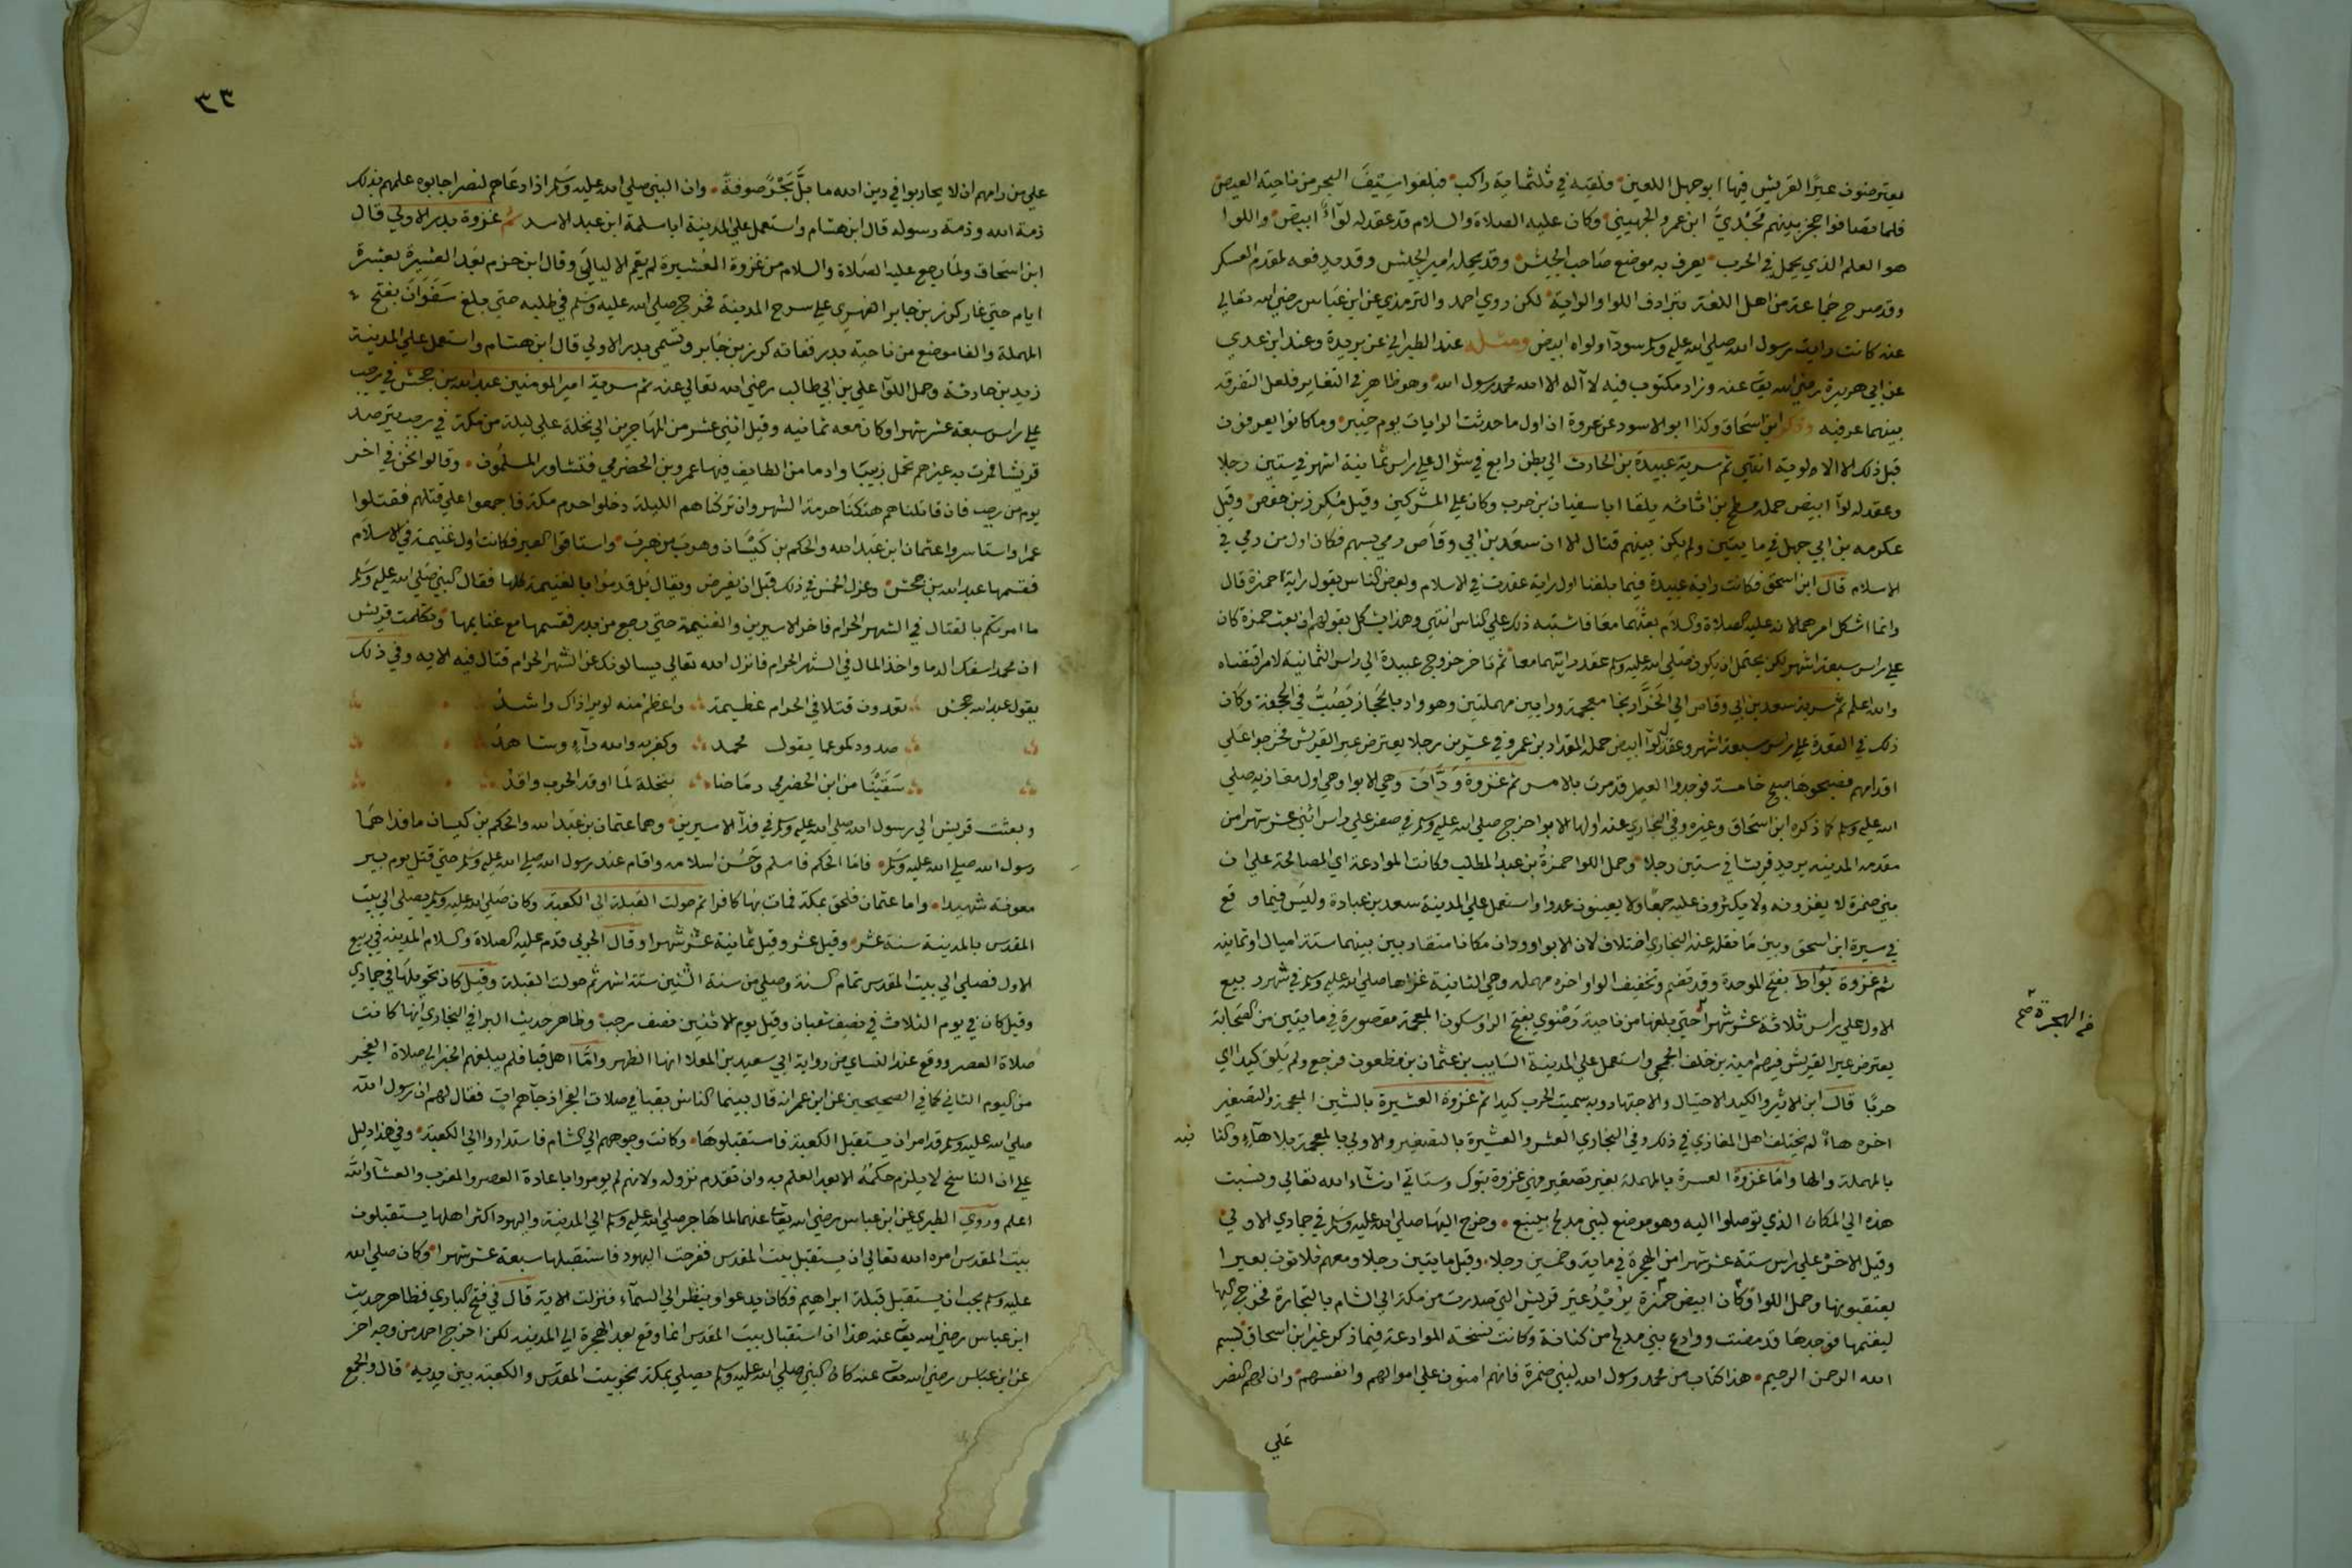 يعترضون عيرًا لقريش فيها ابو جهل اللعين فلقيه في ثلثماية راكب فبلغوا سيف البحر من ناحية العيص
فلما تصافوا حجز بينهم مَجْدِيّ ابن عمرو الجهيني وكان عليه الصلاة والسلام قد عقد له لوآءً ابيض واللوا
هو العلم الذي يحمل في الحرب يعرف به موضع صاحب الجيش وقد يحمله امير الجيش وقد يدفعه لمقدم العسكر
وقد صرح جماعة من اهل اللغة بترادف اللوا والراية لكن روي احمد والترمذي عن ابن عباس رضي الله تعالي
عنه كانت راية رسول الله صلي الله عليه وسلم سودآ ولواه ابيض ومثله عند الطبراني عن بريدة وعند ابن عدي
عن ابي هريرة رضي الله تعا عنه وزاد مكتوب فيه لا اله الا الله محمد رسول الله وهو ظاهر في التغاير فلعل التفرقة
بينهما عرفيه وذكر ابن اسحاق وكذا ابو الاسود عن عروة ان اول ما حدثت الرايات يوم خيبر وما كانوا يعرفون
قبل ذلك الا الالوية انتهي ثم سرية عبيدة بن الحارث الي بطن رابغ في شوال علي راس ثمانية اشهر في ستين رجلا
وعقد له لوآ ابيض حمله مسطح بن اثاثه يلقا ابا سفيان بن حرب وكان علي المشركين وقيل مكرز بن حفص وقيل
عكرمه بن ابي جهل في مايتين ولم يكن بينهم قتال الا ان سعد بن ابي وقاص رمي بسهم فكان اول من رمي في
الاسلام قال ابن اسحق فكانت راية عبيدة فيما بلغنا اول راية عقدت في الاسلام وبعض الناس يقول راية حمزة قال
وانما اشكل امرهما لانه عليه الصلاة والسلام بعثهما معا فاشتبه ذلك علي الناس انتهي وهذا يشكل بقولهم ان بعث حمزة كان
علي راس سبعة اشهر لكن يحتمل ان يكون صلي الله عليه وسلم عقد رايتهما معا ثم تاخر خروج عبيدة الي راس الثمانية لامر اقتضاه
والله اعلم ثم سرية سعد بن ابي وقاص الي الخَرَّار بخا معجمة وراين مهملتين وهو واد بالحجاز يَصُبُّ في الجحفة وكان
ذلك في القعدة علي راس تسعة اشهر وعقد له لوآ ابيض حمله المقداد بن عمرو في عشرين رجلا يعترض عير القريش فخرجوا علي
اقدامهم فصبحوها صبح خامسة فوجدوا العير قد مرت بالامس ثم غزوة وَدَّان وهي الابوا وهي اول مغازيه صلي
الله عليه وسلم كما ذكره ابن اسحاق وغيره وفي البخاري عنه اولها الابوا خرج صلي الله عليه وسلم في صفر علي راس اثني عشر شهرا من
مقدمه المدينه يريد قريشا في ستين رجلا وحمل اللوا حمزة بن عبد المطلب وكانت الموادعة اي المصالحة علي ان
بني ضمرة لا يغزونه ولا يكثرون عليه جمعا ولا يعينون عدوا واستعمل علي المدينة سعد بن عبادة وليس فيما وقع
في سيرة ابن اسحق وبين ما نقله عنه البخاري اختلاف لان الابوا وودان مكانا متقاربين بينهما ستة اميال او ثمانيه
ثم غزوة بَوُاط بفتح الموحدة وقد تضم وتخفيف الواو اخره مهمله وهي الثانية غزاها صلي الله عليه وسلم في شهر ربيع
الاول علي راس ثلاثة عشر شهرا حتي بلغها من ناحية رَضْوي بفتح الرا وسكون المعجمة مقصورة في مايتين من الصحابة
من الهجرة صح
يعترض عير القريش فيهم امية بن خلف الجمحي واستعمل علي المدينة السايب بن عثمان بن مظعون فرجع ولم يَلقَ كيدا اي
حربًا قال ابن الاثير والكيد الاحتيال والاجتهاد وبه سميت الحرب كيدا ثم غزوة العشيرة بالشين المعجمة والتصغير
اخره هاءً لم يختلف اهل المغازي في ذلك وفي البخاري العشير والعسيرة بالتصغير والاولي بالمعجمة بلا هآءٍ والثا نيه
بالمهملة والها واما غزوة العسرة بالمهملة بغير تصغير فهي غزوة تبوك وستاتي ان شاء الله تعالي ونسبت
هذه الي المكان الذي توصلوا اليه وهو موضع لبني مدلج بينبع وخرج اليها صلي الله عليه وسلم في جمادي الاولي
وقيل الاخرة علي راس ستة عشر شهرا من الهجرة في ماية وخمسين رجلا وقيل مايتين رجلا ومعهم ثلاثون بعيرا
يعتقبونها وحمل اللوا وكان ابيض حمزة يريدُ عير قريش التي صدرت من مكة الي الشام بالتجارة فخرج اليها
ليغنمها فوجدها قد مضت ووادع بني مدلج من كنانة وكانت نسخة الموادعة فيما ذكر غير ابن اسحاق بسم
الله الرحمن الرحيم هذا كتاب من محمد رسول الله لبني ضمرة فانهم امنون علي اموالهم وانفسهم وان لهم النصر
علي
٣٣
علي من رامهم ان لا يحاربوا في دين الله ما بلَّ بَحْرٌ صوفةً وان النبي صلي الله عليه وسلم اذا دعاهم لنصر اجابوه عليهم بذلك
ذمة الله وذمة رسوله قال ابن هشام واستعمل علي المدينة ابا سلمة ابن عبد الاسد ثم غزوة بدر الاولي قال
ابن اسحاق ولما رجع عليه الصلاة والسلام من غزوة العُشيرة لم يقم الا ليالي وقال ابن حزم بعد العشيرة بعشرة
ايام حتي غار كرز بن جابر الفهري علي سرح المدينة فخرج صلي الله عليه وسلم في طلبه حتي بلغ سَفَوَان بفتح
المهملة والفا موضع من ناحية بدر ففاته كرز بن جابر وتسمي بدر الاولي قال ابن هشام واستعمل علي المدينة
زيد بن حارثة وحمل اللوآ علي بن ابي طالب رضي الله تعالي عنه ثم سرية امير المومنين عبد الله بن جحش في رجب
علي راس سبعة عشر شهرا وكان معه ثمانيه وقيل اثني عشر من المهاجرين الي نخلة علي ليلة من مكة في رجب يترصد
قريشا فمرت به عيرهم تحمل زبيبا وادما من الطايف فيها عمرو بن الحضرمي فتشاور المسلمون وقالوا نحن في اخر
يوم من رجب فان قاتلناهم هتكنا حرمة الشهر وان تركناهم الليلة دخلوا حرم مكة فاجمعوا علي قتلهم فقتلوا
عمرا واستاسروا عثمان ابن عبد الله والحكم بن كيسان وهرب من هرب واستاقوا العير فكانت اول غنيمة في الاسلام
فقسمها عبد الله بن جحش وعزل الخمس في ذلك قبل ان يفرض ويقال بل قدموا بالغنيمة كلها فقال النبي صلي الله عليه وسلم
ما امرتكم بالقتال في الشهر الحرام فاخر الاسيرين والغنيمة حتي رجع من بدر فقسمها مع غنايمها وتكلمت قريش
ان محمدا سفك الدما واخذ المال في الشهر الحرام فانزل الله تعالي يسالونك عن الشهر الحرام قتال فيه الايه وفي ذلك
يقول عبد الله جحش تعدون قتلا في الحرام عظيمة واعظم منه لو يرا ذاك راشدُ
صدودكمو عما يقول محمد وكفر به والله رآءٍ وشاهدُ
سَقَيْنَا من ابن الحضرمي رماحنا بنخلة لما اوقد الحرب واقدُ
وبعثت قريش الي رسول الله صلي الله عليه وسلم في فدآ الاسيرين وهما عثمان بن عبد الله والحكم بن كيسان ما فداهما
رسول الله صلي الله عليه وسلم فاما الحكم فاسلم وحَسُن اسلامه واقام عند رسول الله صلي الله عليه وسلم حتي قتل يوم بير
معونه شهيدا واما عثمان فلحق بمكة فمات بها كافرا ثم حولت القبلة الي الكعبة وكان صلي الله عليه وسلم يصلي الي بيت
المقدس بالمدينة ستة عشر وقيل عشر وقيل ثمانية عشر شهرا وقال الحربي قدم عليه الصلاة والسلام المدينه في ربيع
الاول فصلي الي بيت المقدس تمام السنة وصلي من سنة اثنتين ستة اشهر ثم حولت القبلة وقيل كان تحويلها في جمادي
وقيل كان في يوم الثلاث في نصف شعبان وقيل يوم الاثنين نصف رجب وظاهر حديث البرا في البخاري انها كانت
صلاة العصر ووقع عند النساي من رواية ابي سعيد بن المعلا انها الظهر وامّا اهل قبا فلم يبلغهم الخبر الي صلاة الفجر
من اليوم الثاني كما في الصحيحين عن ابن عمر انه قال بينما الناس بقبا في صلات الفجر اذ جآهم اتٍ فقال لهم ان رسول الله
صلي الله عليه وسلم قد امر ان يستقبل الكعبة فاستقبلوها وكانت وجوههم الي الشام فاستداروا الي الكعبة وفي هذا دليل
علي ان الناسخ لا يلزم حكمُهُ الا بعد العلم به وان تقدم نزوله ولانهم لم يومروا باعادة العصر والمغرب والعشآ والله
اعلم وروي الطبري عن ابن عباس رضي الله تعا عنهما لما هاجر صلي الله عليه وسلم الي المدينة واليهود اكثر اهلها يستقبلون
بيت المقدس امره الله تعالي ان يستقبل بيت المقدس ففرحت اليهود فاستقبلها سبعة عشر شهرا وكان صلي الله
عليه وسلم يحب ان يستقبل قبلة ابراهيم فكان يدعوا وينظر الي السمآء فنزلت الاية قال في فتح الباري فظاهر حديث
ابن عباس رضي الله تعا عنه هذا ان استقبال بيت المقدس انما وقع بعد الهجرة الي المدينه لكن اخرج احمد من وجه اخر
عن ابن عباس رضي الله تعا عنه كان النبي صلي الله عليه وسلم يصلي بمكة نحو بيت المقدس والكعبة بين يديه قال والجمع